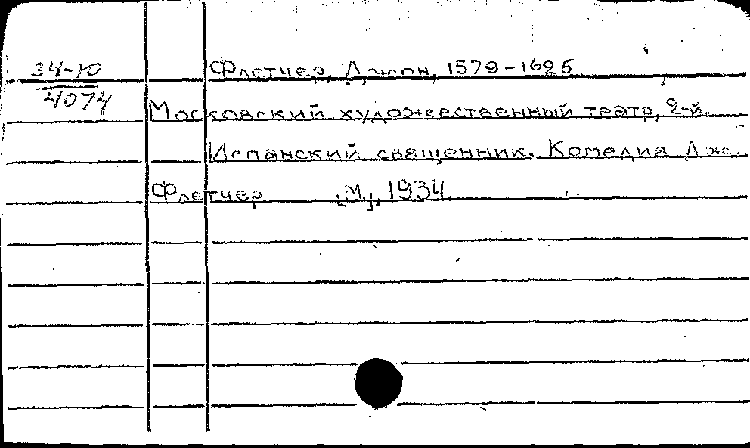 34-10
4074
Флетчер, Джон, 1579-1625
Московский художественный театр, 2-й.
Испанский священник. Комедия Дж.
Флетчер [М], 1934